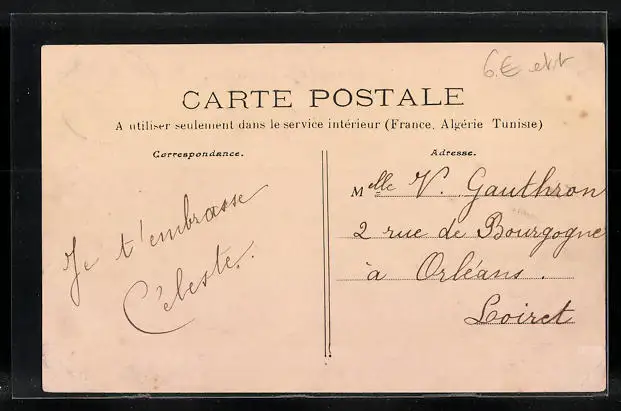 6.€
CARTE POSTALE
A utiliser seulement dans le service intérieur (France, Algérie Tunisie)
Correspondance.
Adresse.
Je t'embrasse
Céleste.
Melle V. Gauthron
2 rue de Bourgogne
à Orléans.
Loiret